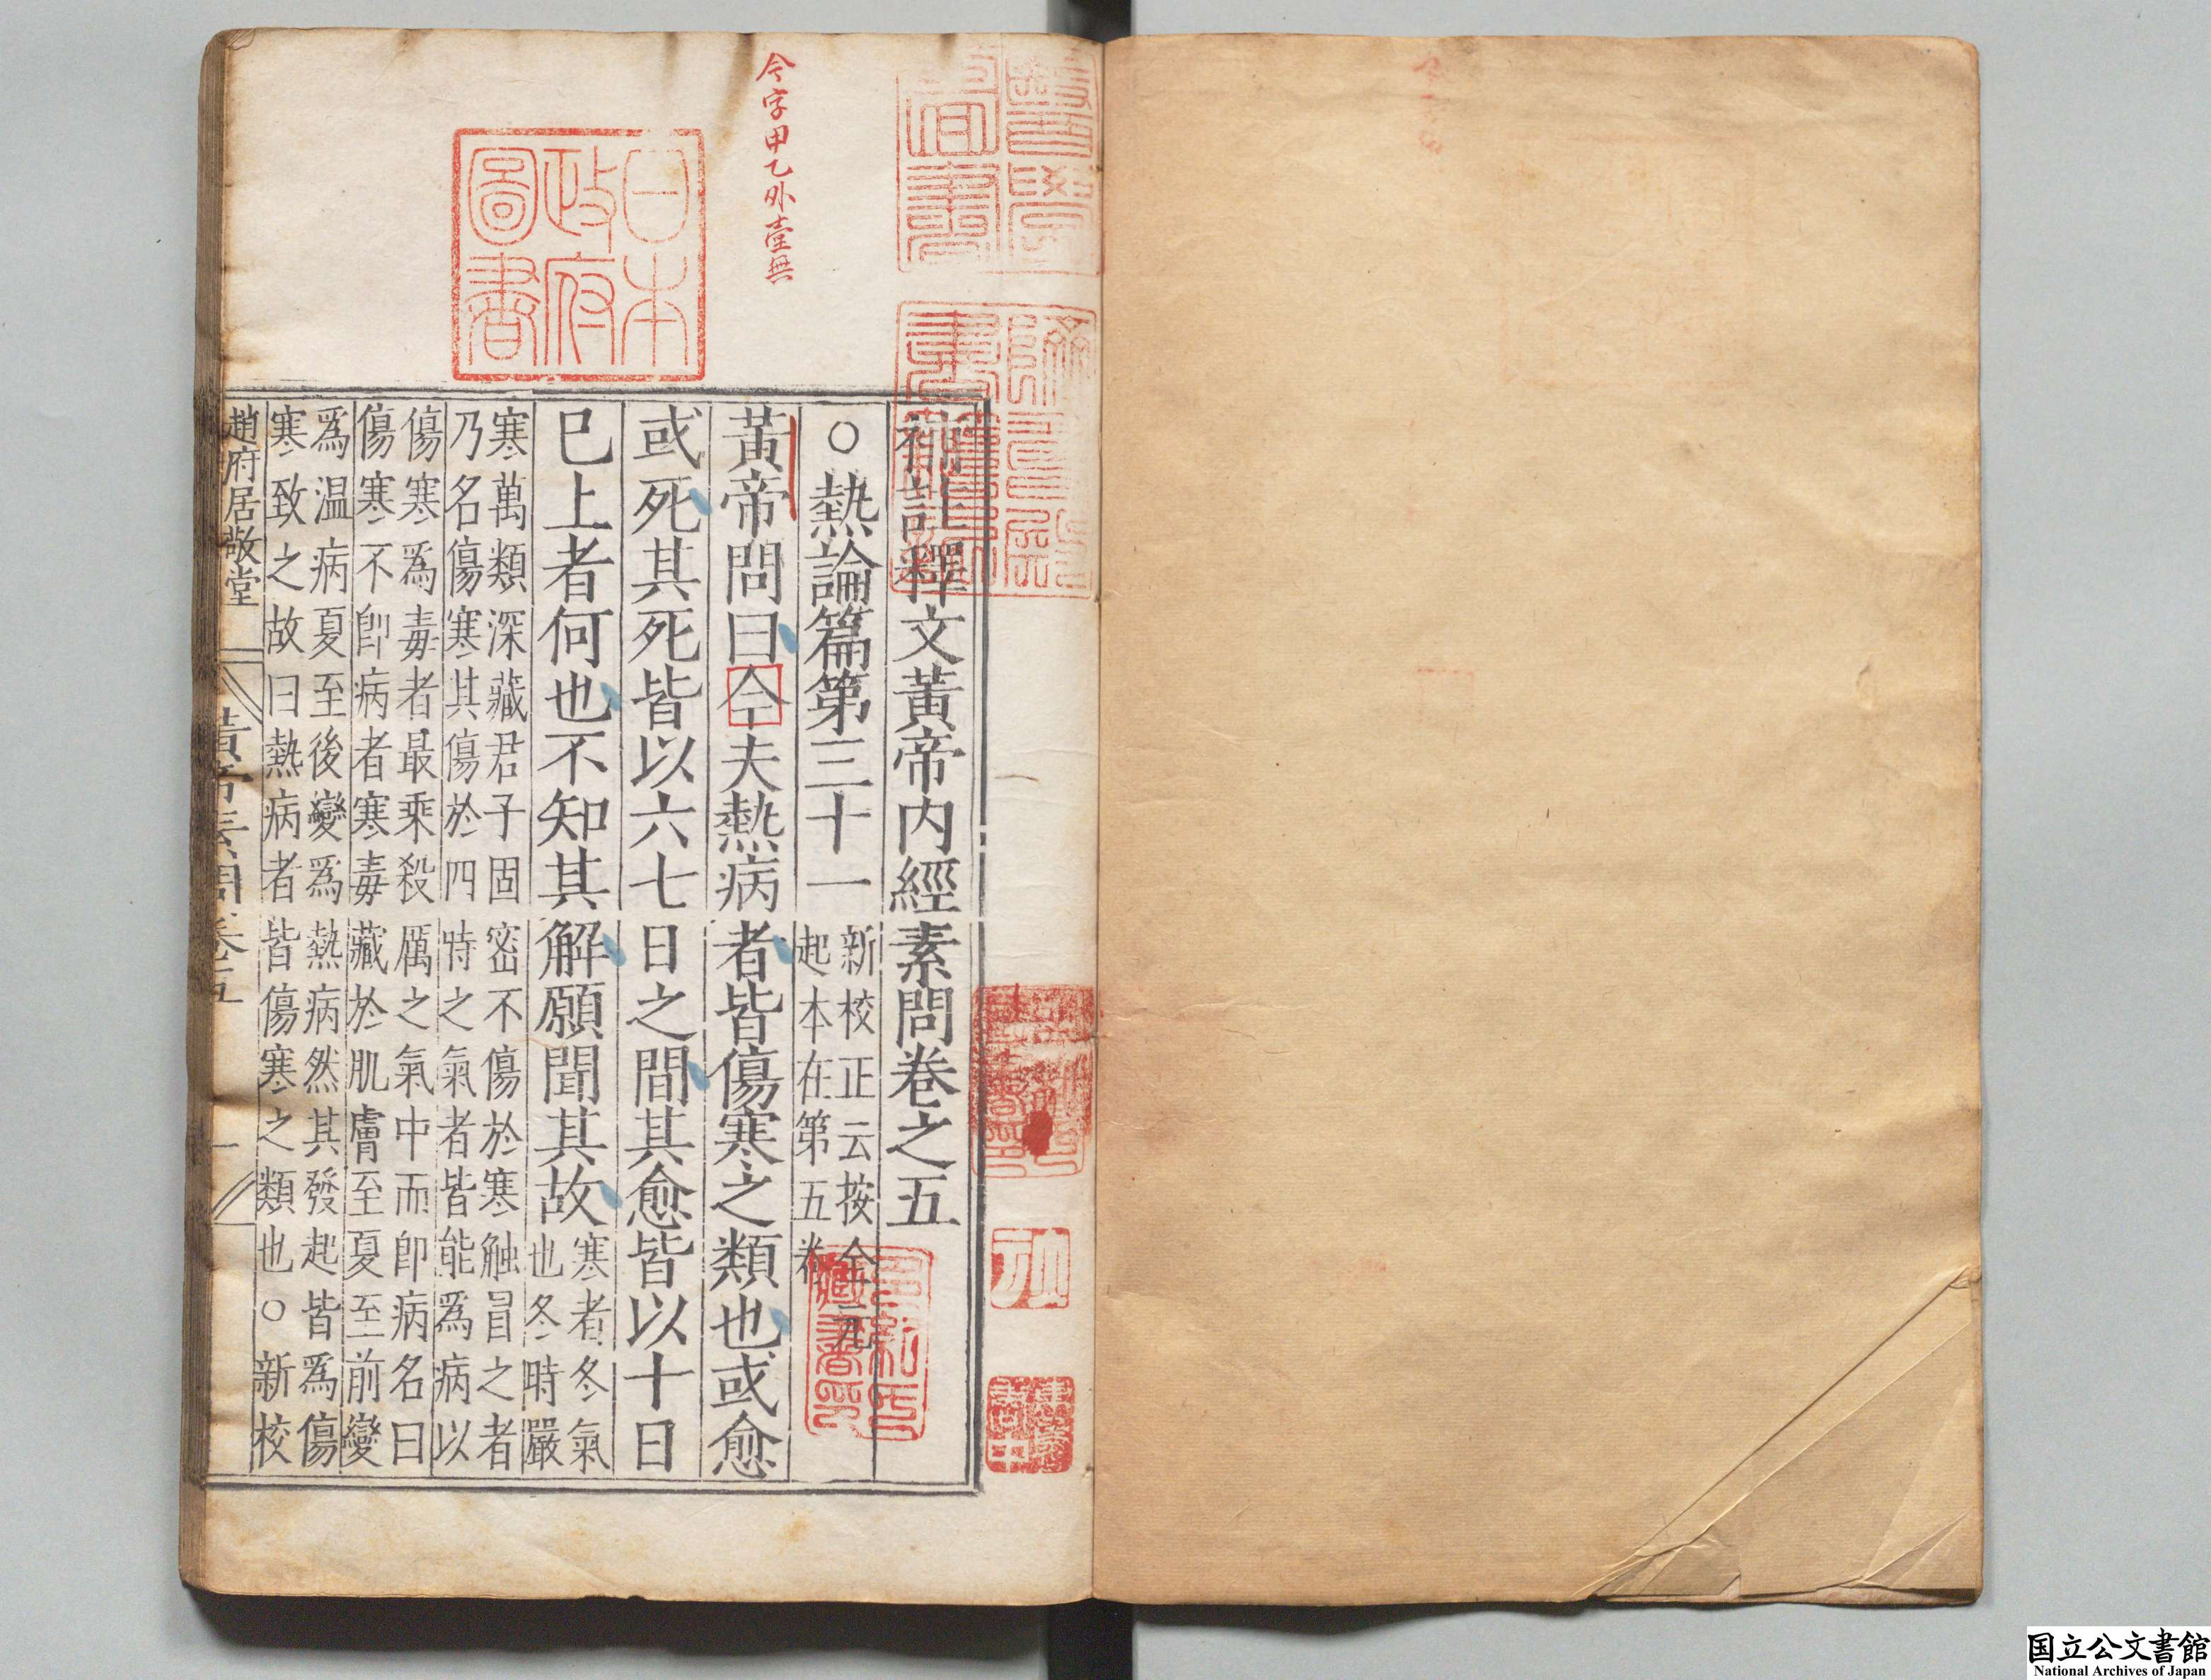 今字甲乙外臺無
日本
政府
圖書
補註釋文黃帝內經素問卷之五
○熱論篇第三十一
新校正云按全元
起本在第五卷
黃帝問曰今夫熱病者皆傷寒之類也或愈
或死其死皆以六七日之間其愈皆以十日
巳上者何也不知其解願聞其故
寒者冬氣
也冬時嚴
寒萬類深藏君子固密不傷於寒觸冒之者
乃名傷寒其傷於四時之氣者皆能爲病以
傷寒爲毒者最乘殺厲之氣中而即病名曰
傷寒不即病者寒毒藏於肌膚至夏至前變
爲温病夏至後變爲熱病然其發起皆爲傷
寒致之故曰熱病者皆傷寒之類也○新校
趙府居敬堂
黃帝素問卷五
一
国立公文書館
National Archives of Japan